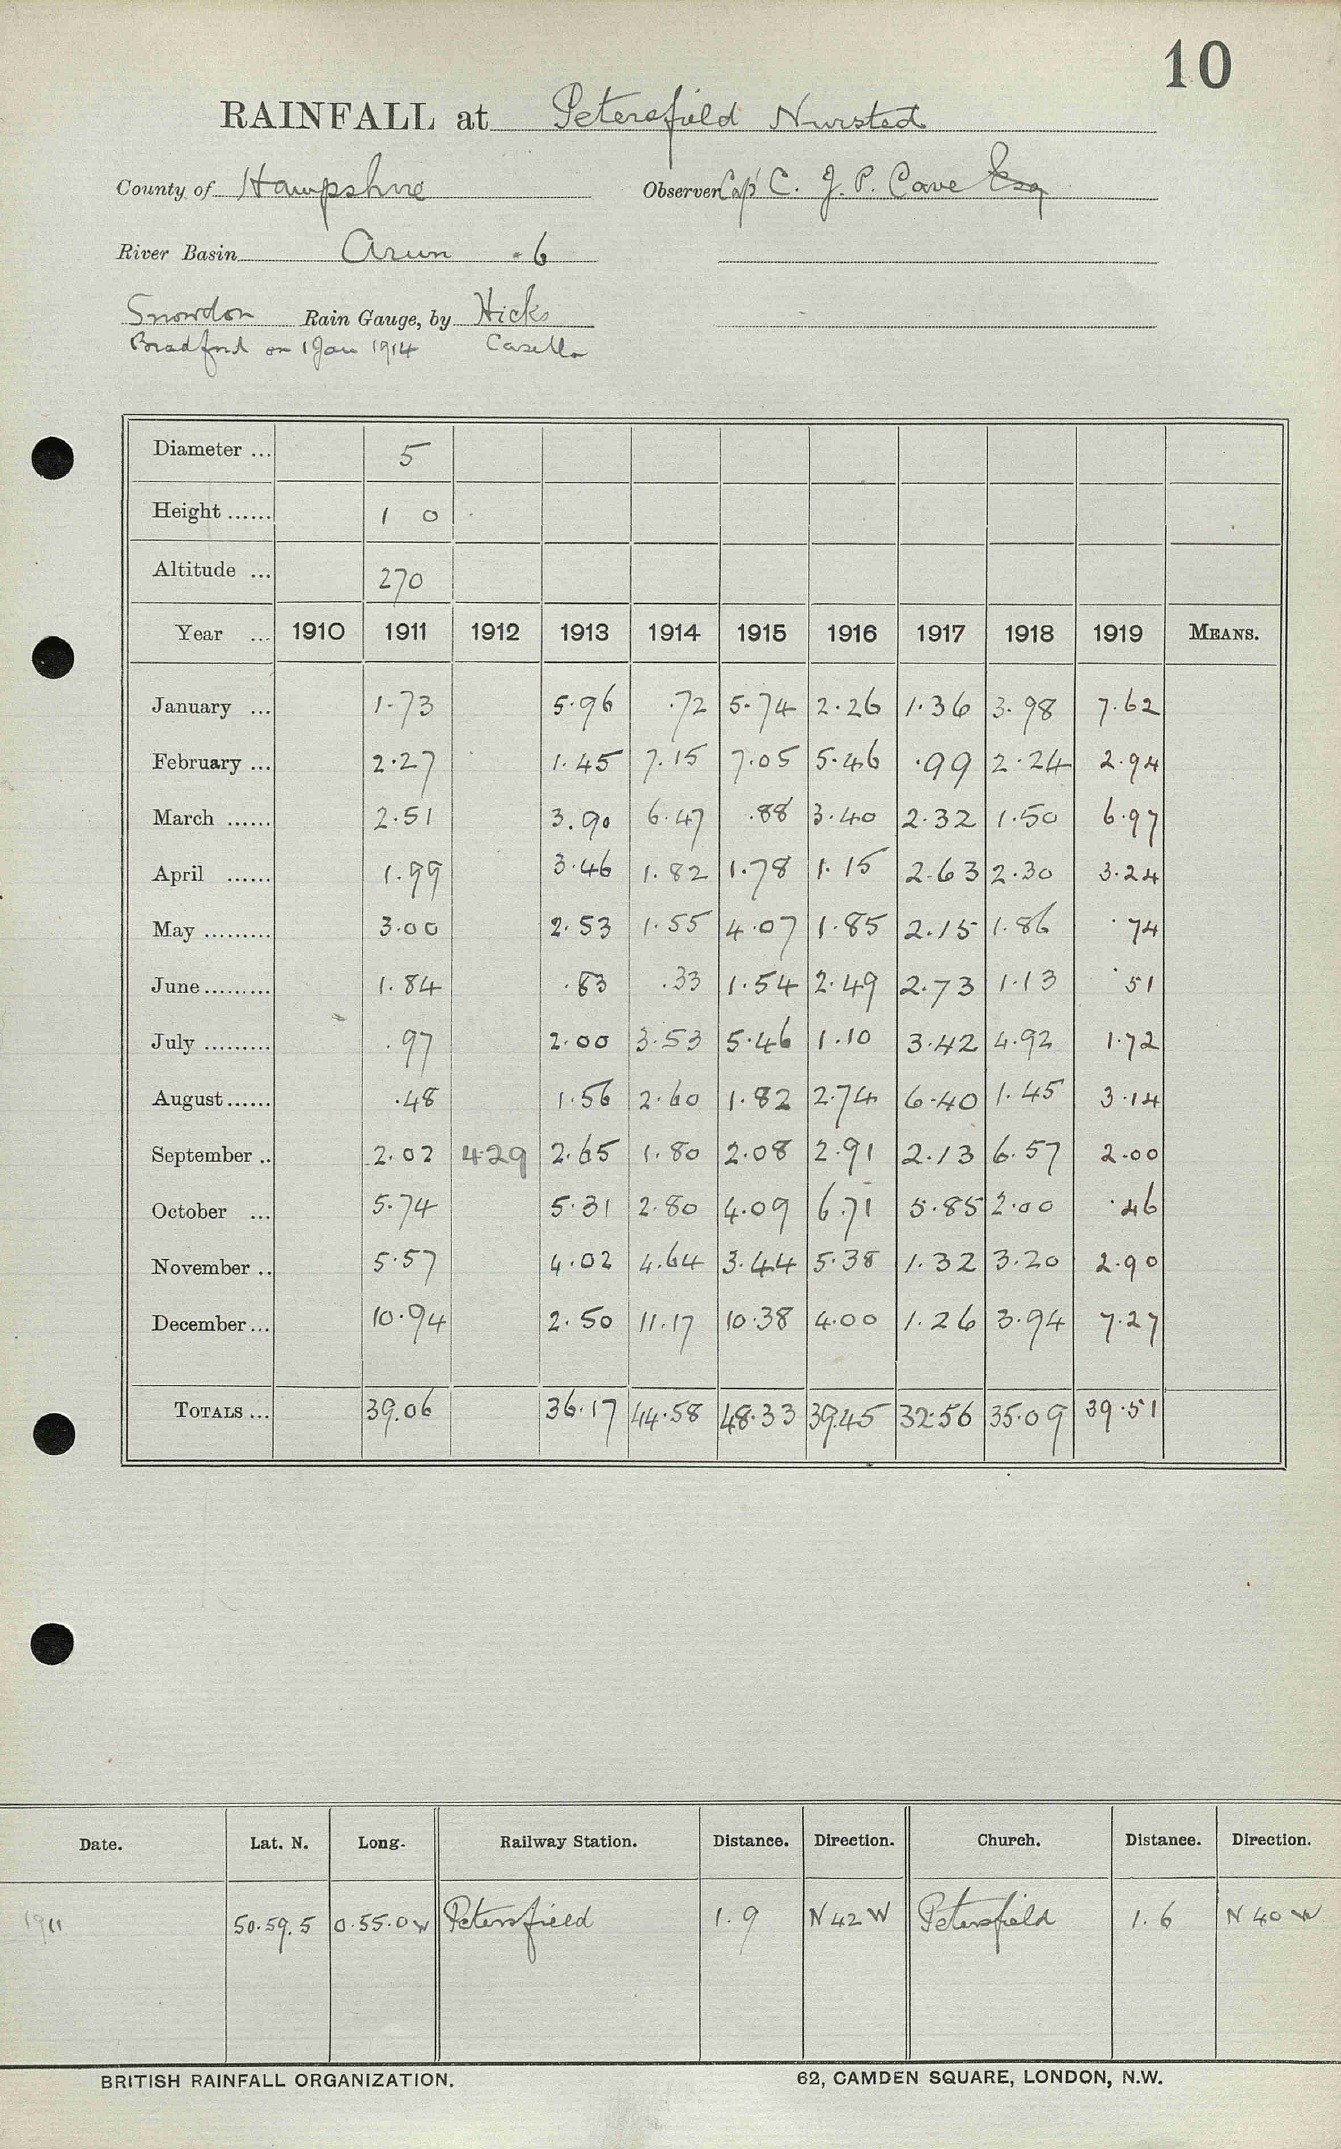 10
RAINFALL at Petersfield Nursted
County of Hampshire Observer Capt C. J. P. Cave Esq
River Basin Arun - 6
Snowdon Rain Gauge, by Hicks
Bradford on 1 Jan 1914 Casella
Diameter ... 5
Height ...... 1 0
Altitude ... 270
Year ... 1910 1911 1912 1913 1914 1915 1916 1917 1918 1919 MEANS.
January ... 1.73 5.96 .72 5.74 2.26 1.36 3.98 7.62
February ... 2.27 1.45 7.15 7.05 5.46 .99 2.24 2.94
March ...... 2.51 3.90 6.47 .88 3.40 2.32 1.50 6.97
April ...... 1.99 3.46 1.82 1.78 1.15 2.63 2.30 3.24
May ......... 3.00 2.53 1.55 4.07 1.85 2.15 1.86 .74
June ......... 1.84 .83 .33 1.54 2.49 2.73 1.13 .51
July ......... .97 2.00 3.53 5.46 1.10 3.42 4.92 1.72
August ...... .48 1.56 2.60 1.82 2.74 6.40 1.45 3.14
September .. 2.02 4.29 2.65 1.80 2.08 2.91 2.13 6.57 2.00
October ... 5.74 5.31 2.80 4.09 6.71 5.85 2.00 .46
November .. 5.57 4.02 4.64 3.44 5.38 1.32 3.20 2.90
December ... 10.94 2.50 11.17 10.38 4.00 1.26 3.94 7.27
TOTALS ... 39.06 36.17 44.58 48.33 39.45 32.56 35.09 39.51
Date. Lat. N. Long. Railway Station. Distance. Direction. Church. Distance. Direction.
1911 50.59.5 0.55.0 W Petersfield 1.9 N 42 W Petersfield 1.6 N 40 W
BRITISH RAINFALL ORGANIZATION. 62, CAMDEN SQUARE, LONDON, N.W.